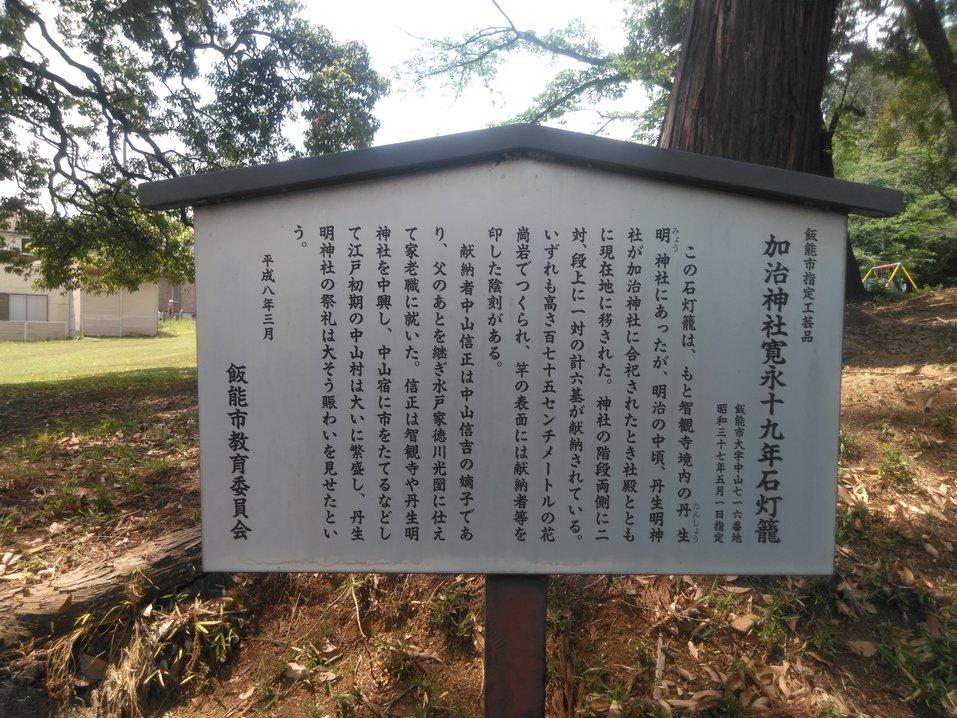 飯能市指定工芸品
加治神社寛永十九年石灯籠
飯能市大字中山七一六番地
昭和三十七年五月一日指定
この石灯籠は、もと智観寺境内の丹生
たんしょう
明神社にあったが、明治の中頃、丹生明神
みょう
社が加治神社に合祀されたとき社殿ととも
に現在地に移された。神社の階段両側に二
対、段上に一対の計六基が献納されている。
いずれも高さ百七十五センチメートルの花
崗岩でつくられ、竿の表面には献納者等を
印した陰刻がある。
献納者中山信正は中山信吉の嫡子であ
り、父のあとを継ぎ水戸家徳川光圀に仕え
て家老職に就いた。信正は智観寺や丹生明
神社を中興し、中山宿に市をたてるなどし
て江戸初期の中山村は大いに繁盛し、丹生
明神社の祭礼は大そう賑わいを見せたとい
う。
平成八年三月
飯能市教育委員会